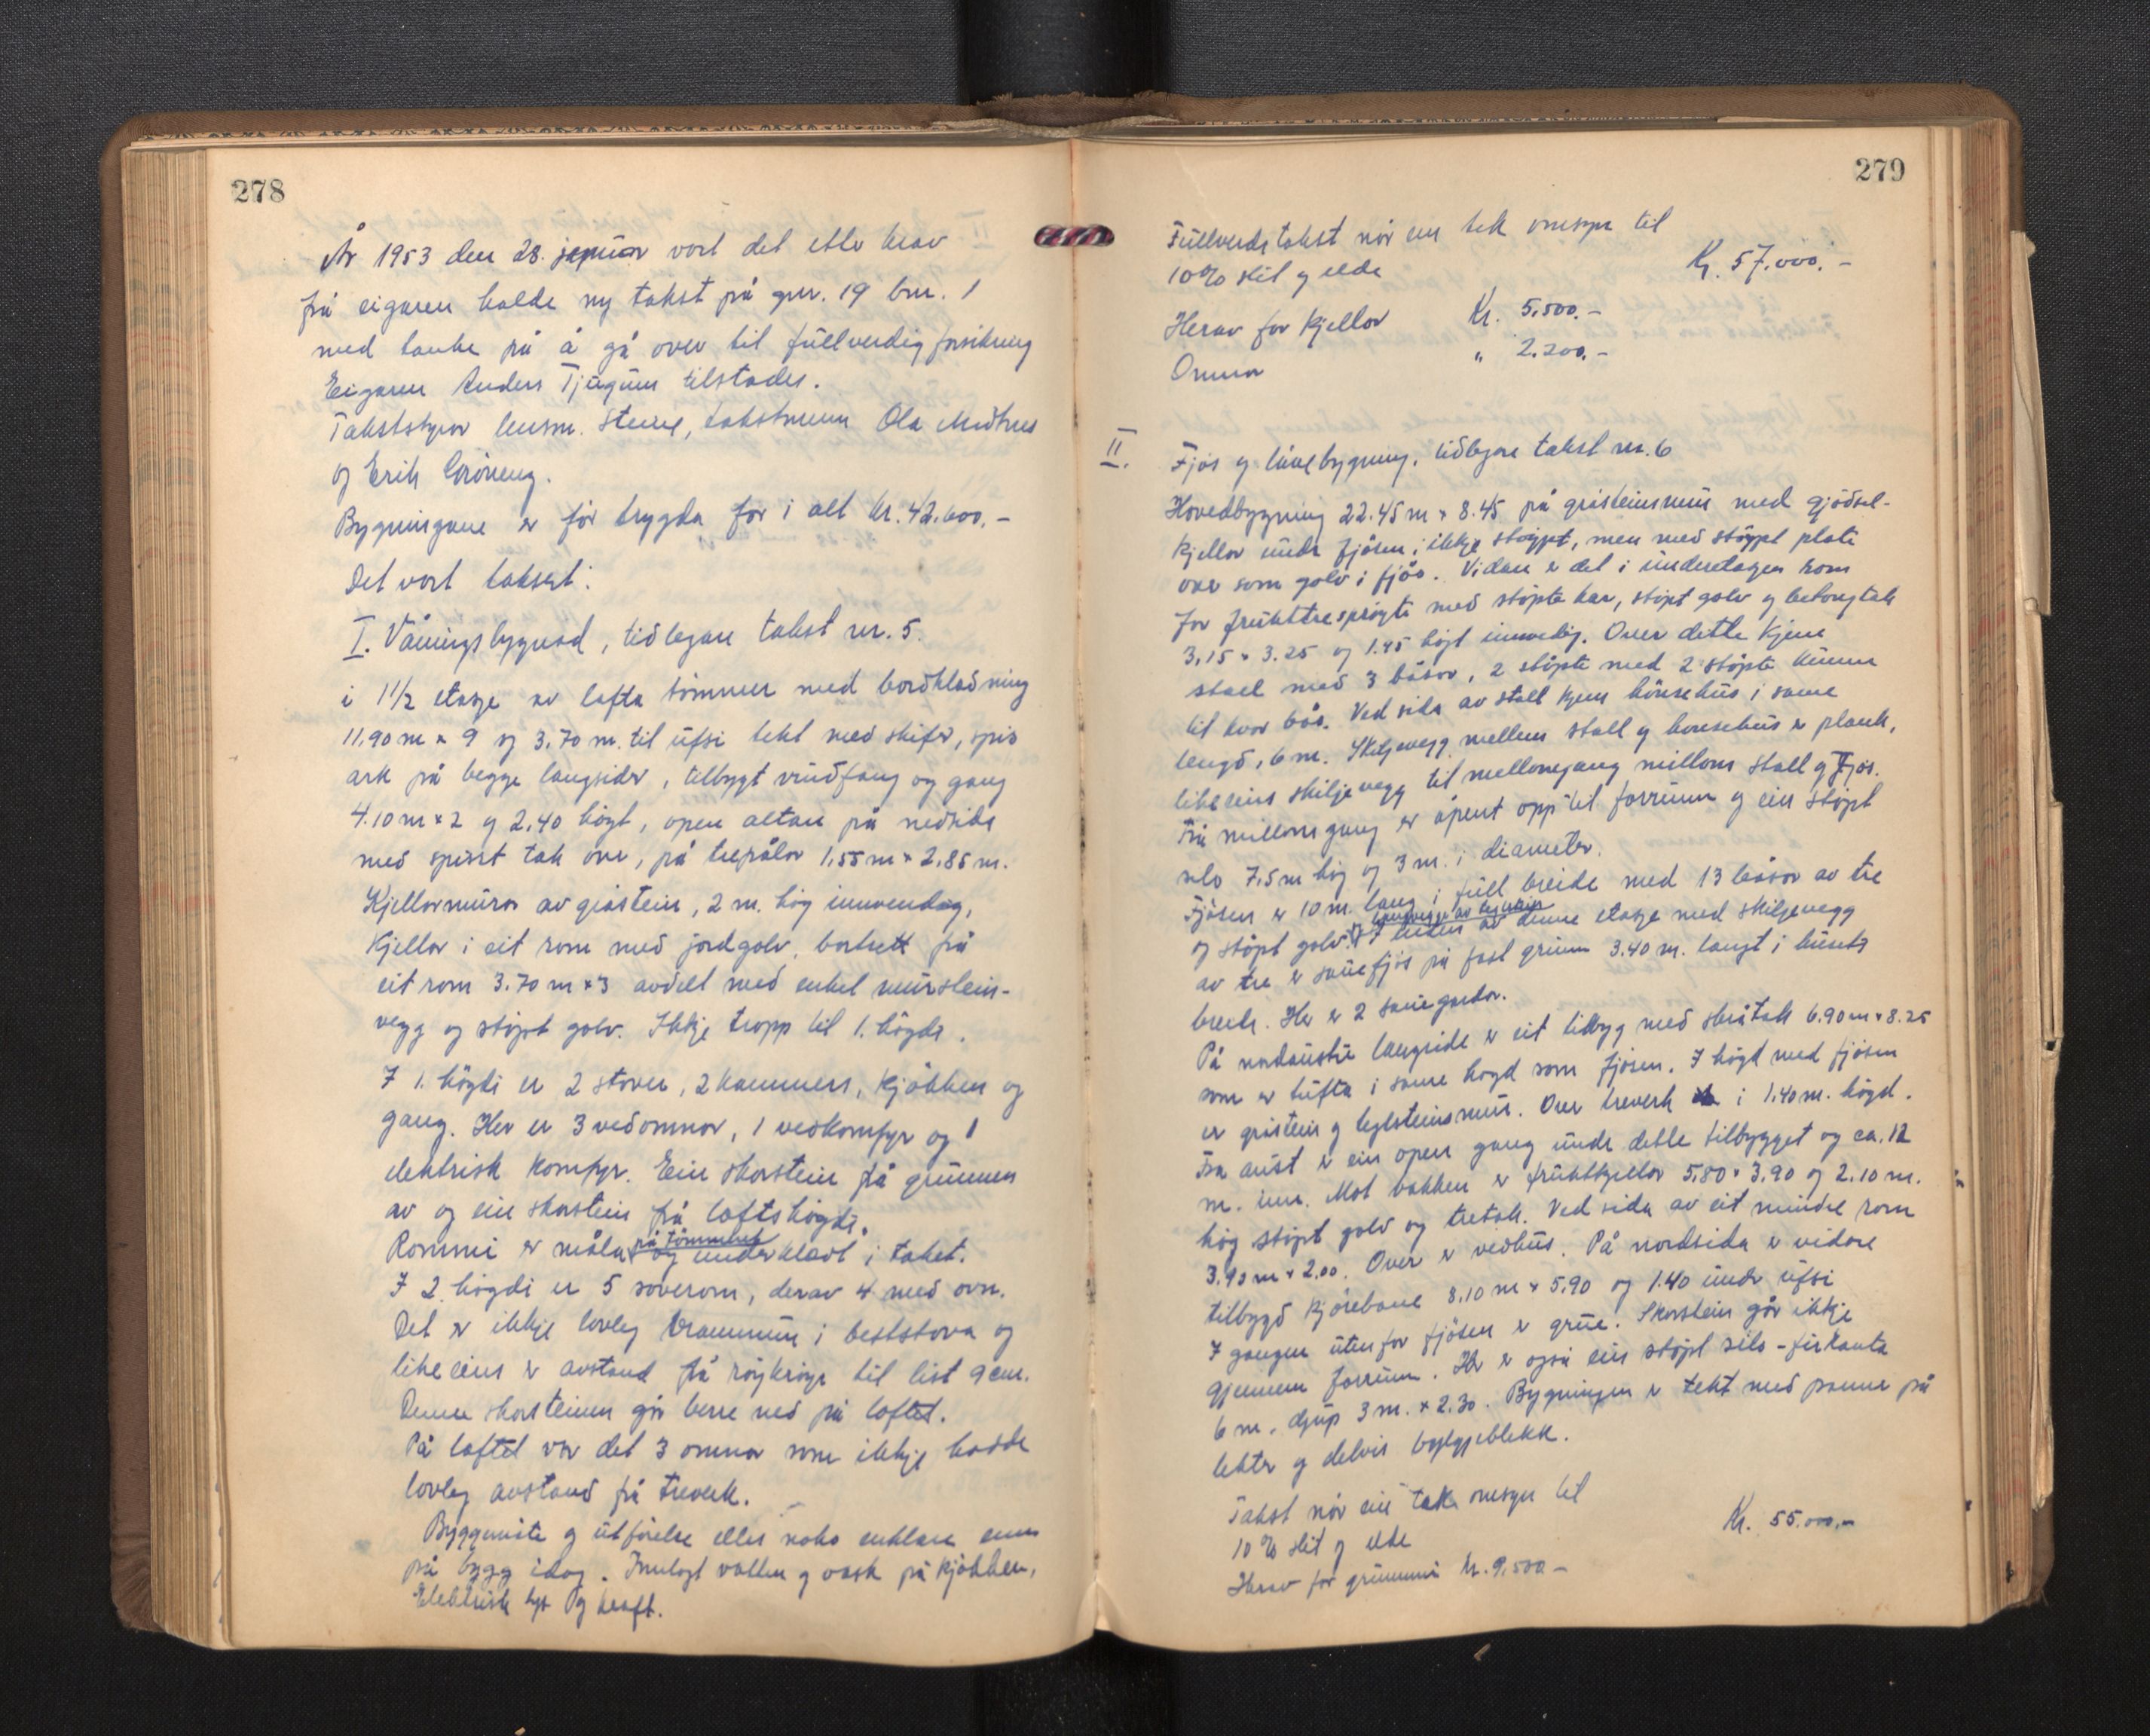 278
År 1953 den 28. januar vart det etter krav
frå eigaren halde ny takst på gnr. 19 bnr. 1
med tanke på å gå over til fullverdig forsikring
Eigaren Anders Tjugum tilstades.
Takststyrar lensm. Steine, takstmenn Ola Midtnes
og Erik Gröneng.
Bygningane er för trygda for i alt kr. 42.600.-
Det vart taksert:
I. Våningsbygnad, tidlegare takst nr. 5.
i 1 1/2 etasje av lafta tömmer med bordkladning
11.90 m x 9 og 3.70 m. til ufsi tekt med skifer, spis
ark på begge langsider, tilbygt vindfang og gang
4.10 m x 2 og 2.40 högt, open altan på nedsida
med spisst tak over, på trepålar 1,55 m x 2,85 m.
Kjellarmurar av gråstein, 2 m. hög innvendig,
Kjellar i eit rom med jordgolv, bortsett frå
eit rom 3.70 m x 3 avdelt med enkel murstein-
vegg og stöpt golv. Ikkje tropp til 1. högda.
I 1. högdi er 2 stover, 2 kammers, kjökken og
gang. Her er 3 vedomnar, 1 vedkomfyr og 1
elektrisk komfyr. Ein skorstein frå grunnen
av og ein skorstein frå loftshögdi.
Rommi er måla på tömmeret og underkledt i taket.
I 2. högdi er 5 soverom, derav 4 med ovn.
Det er ikkje lovleg brannmur i beststova og
likeeins er avstand frå röykröyr til list 9 cm.
Denne skorsteinen går berre ned på loftet.
På loftet var det 3 omnar som ikkje hadde
lovleg avstand frå treverk.
Byggemåte og utförelse elles noko enklare enn
på bygg idag. Innlagt vatten og vask på kjökken,
Elektrisk lys og kraft.
279
Fullverdstakst når ein tek omsyn til
10% slit og elde Kr. 57.000.-
Herav for kjellar Kr. 5.500.-
Omnar " 2.200.-
II. Fjös og lüebygning, tidlegare takst nr. 6
Hovedbygning 22.45 m x 8.45 på gråsteinsmur med gjödsel-
kjellar under fjösen, ikkje stöypt, men med stöypt plate
over som golv i fjös. Vidare er det i underetagen rom
for frukttresprøyte med stöpte kar, stöpt golv og betongtak
3.15 x 3.25 og 1.95 högt innvendig. Over dette kjem
stall med 3 båsar, 2 stöpte med 2 stöpte
til kvar bås. Ved sida av stall kjem hönsehus i same
lengd, 6 m. Skiljevegg mellem stall og hönsehus er plank,
likeeins skiljevegg til mellomgang millom stall og Fjös.
Frå millomgang er åpent opp til forrum og ein stöpt
silo 7,5 m hög og 3 m. i diameter.
Fjösen er 10 m. lang i full breide med 13 båsar av tre
og stöpt golv. I enden av denne etasje med skiljevegg
av tre er sauefjös på fast grunn 3.40 m. langt i husets
breide. Her er 2 sauegardar.
På nordaustre langside er eit tilbyg med skråtak 6.90 m x 8.25
som er tufta i same högd som fjösen. I högd med fjösen
er gråstein og teglsteinsmur. Over treverk i 1.40 m. högd.
Fra aust er ein open gang under dette tilbygget og ca. 12
m. inn. Mot bakken er fruktkjellar 5,80 x 3,90 og 2.10 m.
hög stöpt golv og tretak. Ved sida av eit mindre rom
3.90 m x 2.00. Over er vedhus. På nordsida er vidare
tilbygd kjörebane 8.10 m x 5.90 og 1.40 under ufsi
I gangen utenfor fjösen er grue. Skorstein går ikkje
gjennem forrum. Her er også ein stöpt silo - firkanta
6 m. djup 3 m. x 2.30. Bygningen er tekt med panner på
lekter og delvis bylgjeblekk.
Takst når ein tek omsyn til
10% slit og elde Kr. 55.000.-
Herav for grunnmur kr. 9.500.-